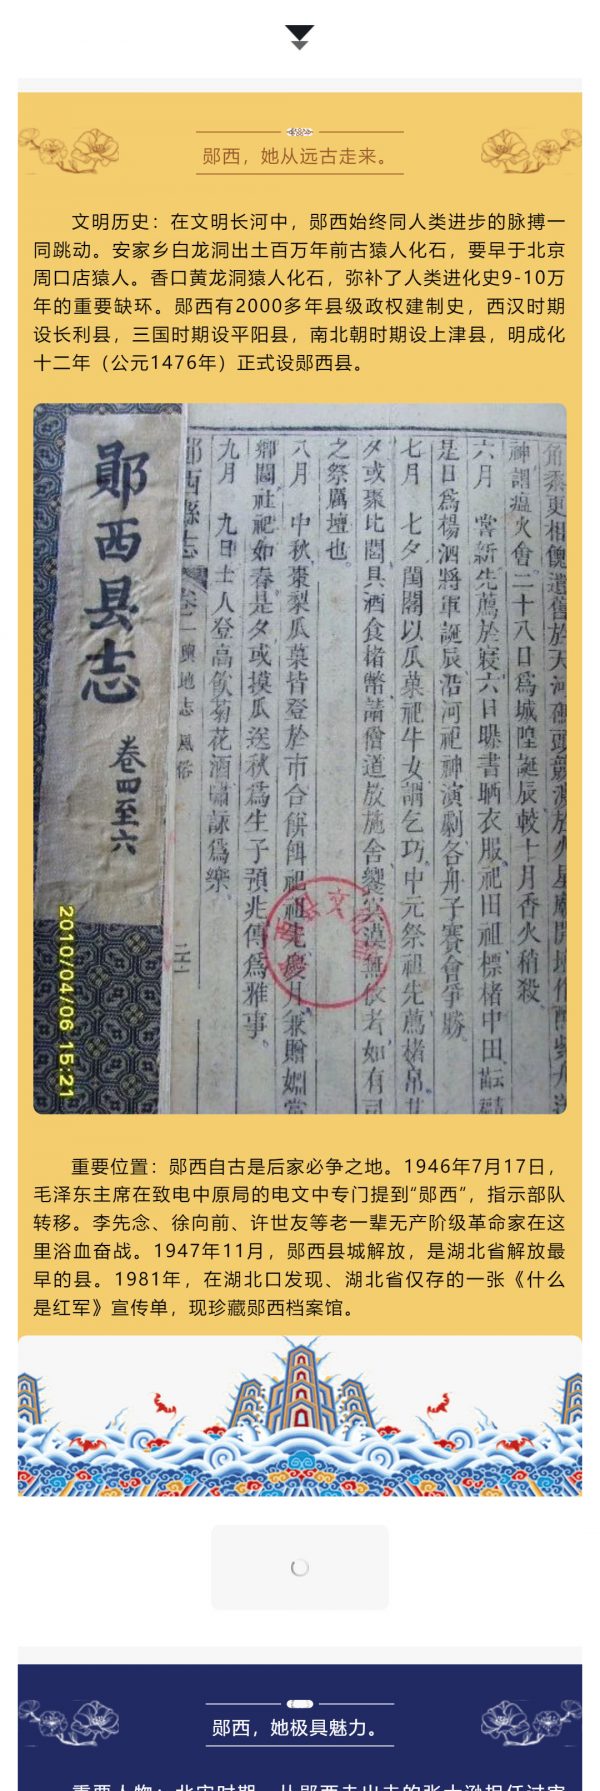 郧西，她从远古走来。
文明历史：在文明长河中，郧西始终同人类进步的脉搏一
同跳动。安家乡白龙洞出土百万年前古猿人化石，要早于北京
周口店猿人。香口黄龙洞猿人化石，弥补了人类进化史9-10万
年的重要缺环。郧西有2000多年县级政权建制史，西汉时期
设长利县，三国时期设平阳县，南北朝时期设上津县，明成化
十二年（公元1476年）正式设郧西县。
神謂瘟火會二十八日爲城隍誕辰較十月香火稍殺
六月　嘗新先薦於寢六日曝書晒衣服祀田祖標楮中田
是日爲楊泗將軍誕辰沿河祀神演劇各舟子賽會爭勝
七月　七夕閨閣以瓜菓祀牛女謂乞巧中元祭祖先薦楮帛
夕或聚比閭具酒食楮幣請僧道放施舍饗衆漠無依者如有司
之祭厲壇也
八月　中秋棗梨瓜菓皆登於市合餅餌祀祖先慶月兼贈姻
鄉閭社祀如春是夕或摸瓜送秋爲生子預兆傳爲雅事
九月　九日士人登高飲菊花酒嘯詠爲樂
郧西縣志 卷二 輿地志 風俗
郧西县志
卷四至六
2010/04/06 15:21
重要位置：郧西自古是后家必争之地。1946年7月17日，
毛泽东主席在致电中原局的电文中专门提到“郧西”，指示部队
转移。李先念、徐向前、许世友等老一辈无产阶级革命家在这
里浴血奋战。1947年11月，郧西县城解放，是湖北省解放最
早的县。1981年，在湖北口发现、湖北省仅存的一张《什么
是红军》宣传单，现珍藏郧西档案馆。
郧西，她极具魅力。